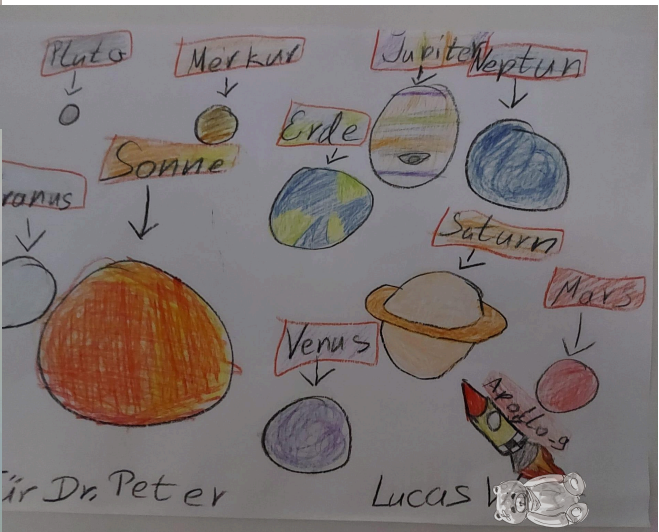 Pluto
Merkur
Jupiter
Neptun
Erde
Sonne
ranus
Saturn
Mars
Venus
Apollo-9
ür Dr. Peter
Lucas